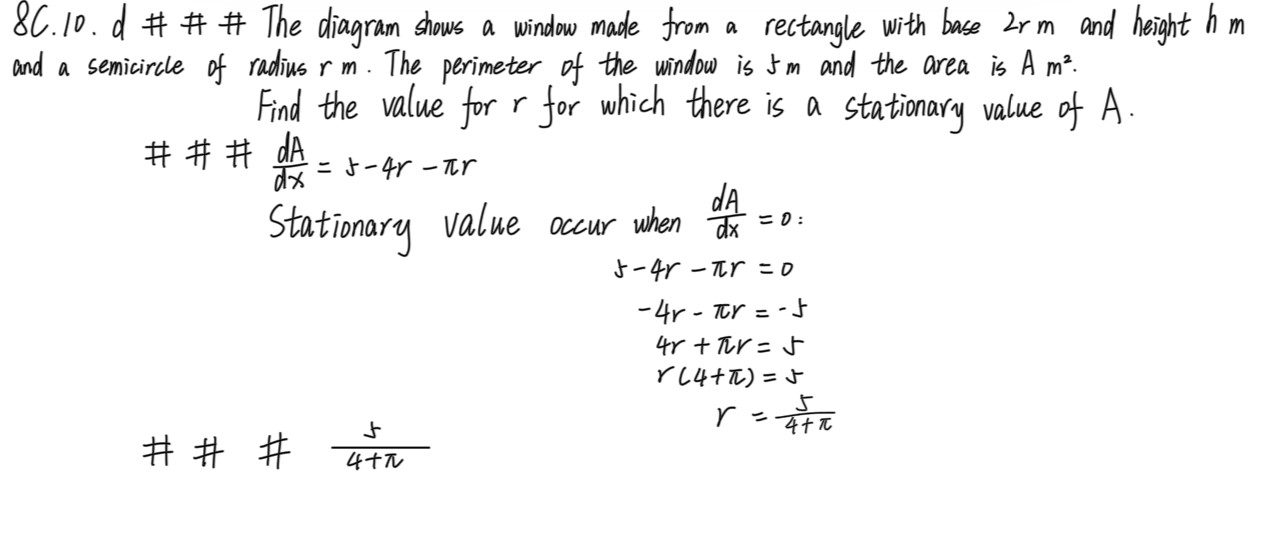 8C.10. d # # # The diagram shows a window made from a rectangle with base 2r m and height h m
and a semicircle of radius r m. The perimeter of the window is 5 m and the area is A m².
Find the value for r for which there is a stationary value of A.
# # # dA/dx = 5-4r-πr
Stationary value occur when dA/dx = 0:
5-4r-πr = 0
-4r-πr = -5
4r+πr = 5
r(4+π) = 5
r = 5/4+π
# # # 5/4+π